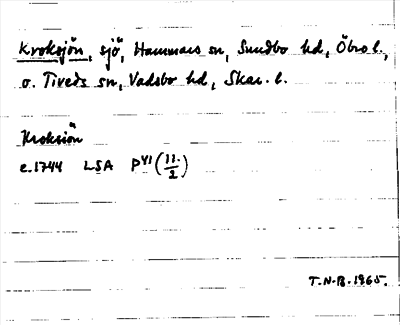 Kroksjön, sjö, Hammars sn, Sundbo hd, Öbro l.,
o. Tiveds sn, Vadsbo hd, Skar. l.
Kroksiön
c. 1744 LSA P41 (11./2)
T.N.B. 1965.